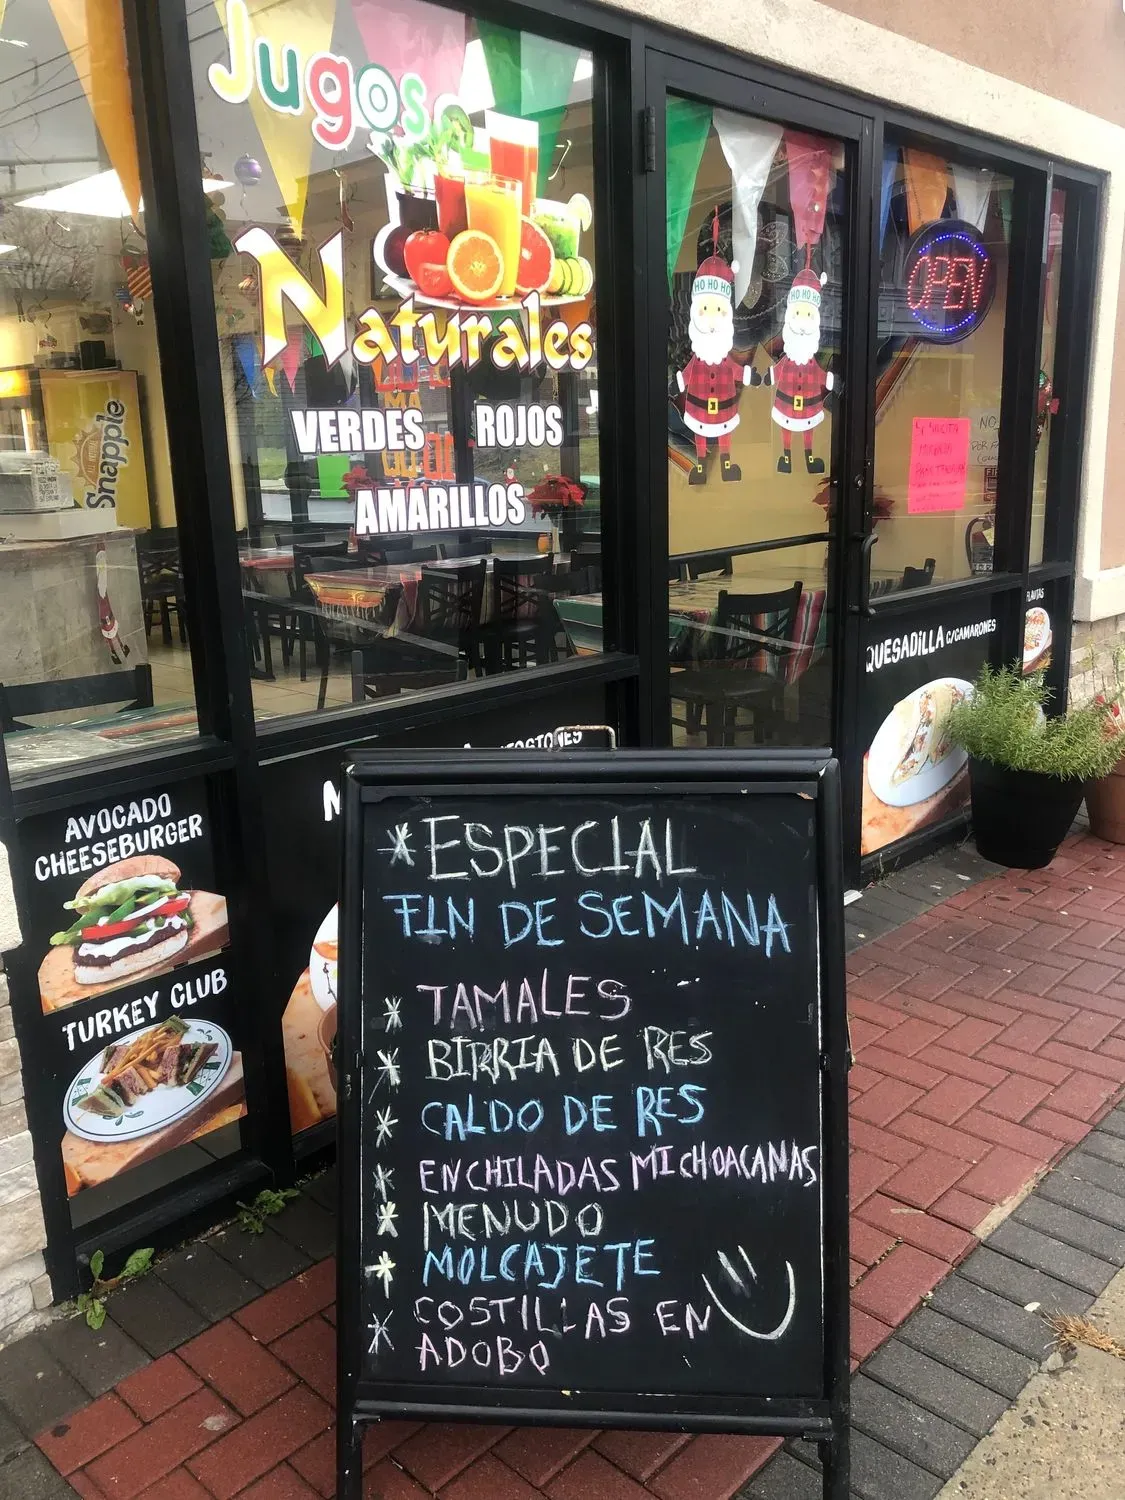 Jugos
Naturales
VERDES ROJOS
AMARILLOS
Snapple
HO HO HO
HO HO HO
OPEN
SE SOLICITA
NO
POR FA
QUESADILLA C/CAMARONES
AVOCADO
CHEESEBURGER
TURKEY CLUB
*ESPECIAL
FIN DE SEMANA
* TAMALES
* BIRRIA DE RES
* CALDO DE RES
* ENCHILADAS MICHOACANAS
* MENUDO
* MOLCAJETE
* COSTILLAS EN
ADOBO